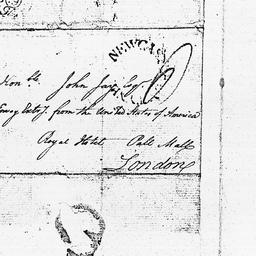 NEWCAS
Honble John Jay Esqr
Envoy Extoy. from the United States of America
Royal Hotel Pall Mall
London